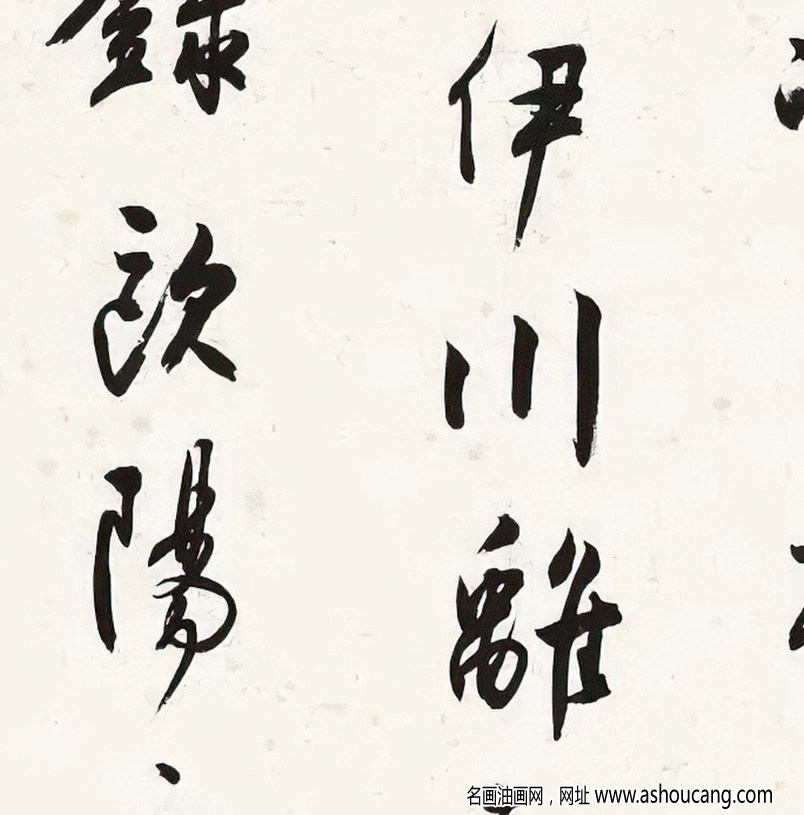 伊川離
錄歐陽
名画油画网，网址 www.ashoucang.com